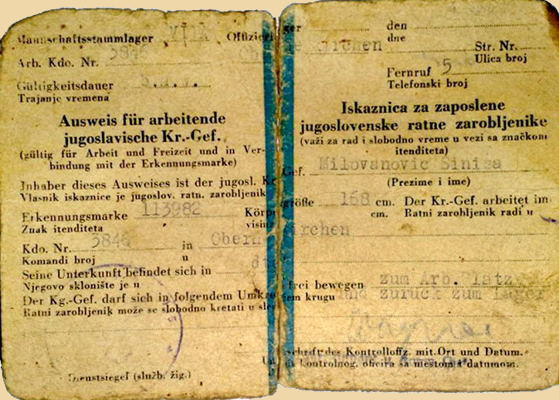 Mannschaftsstammlager VI/K Offizierlager den
dne
Arb. Kdo. Nr. 3846 Oberne irchen Str. Nr.
Ulica broj
Gültigkeitsdauer Fernruf 5
Trajanje vremena Telefonski broj
Ausweis für arbeitende
jugoslavische Kr.-Gef.
(gültig für Arbeit und Freizeit und in Ver-
bindung mit der Erkennungsmarke)
Inhaber dieses Ausweises ist der jugosl. Kr
Vlasnik iskaznice je jugoslov. ratn. zarobljenik
Erkennungsmarke 113982 Körp
Znak itenditeta visin
Kdo. Nr. 3846 in Obern
Komandi broj u
Seine Unterkunft befindet sich in
Njegovo sklonište je u
Der Kg.-Gef. darf sich in folgendem Umkr
Ratni zarobljenik može se slobodno kretati u sle
Dienstsiegel (služb. žig.)
Iskaznica za zaposlene
jugoslovenske ratne zarobljenike
(važi za rad i slobodno vreme u vezi sa značkom
itenditeta)
Gef. Milovanovic Sinisa
(Prezime i ime)
größe 168 cm. Der Kr.-Gef. arbeitet im
cm. Ratni zarobljenik radi u
irchen
frei bewegen zum Arb.
und zurück zum Lager
em krugu
Wagner
schrift des Kontrolloffz. mit Ort und Datum.
kontrolnog oficira sa mestom i datumom.